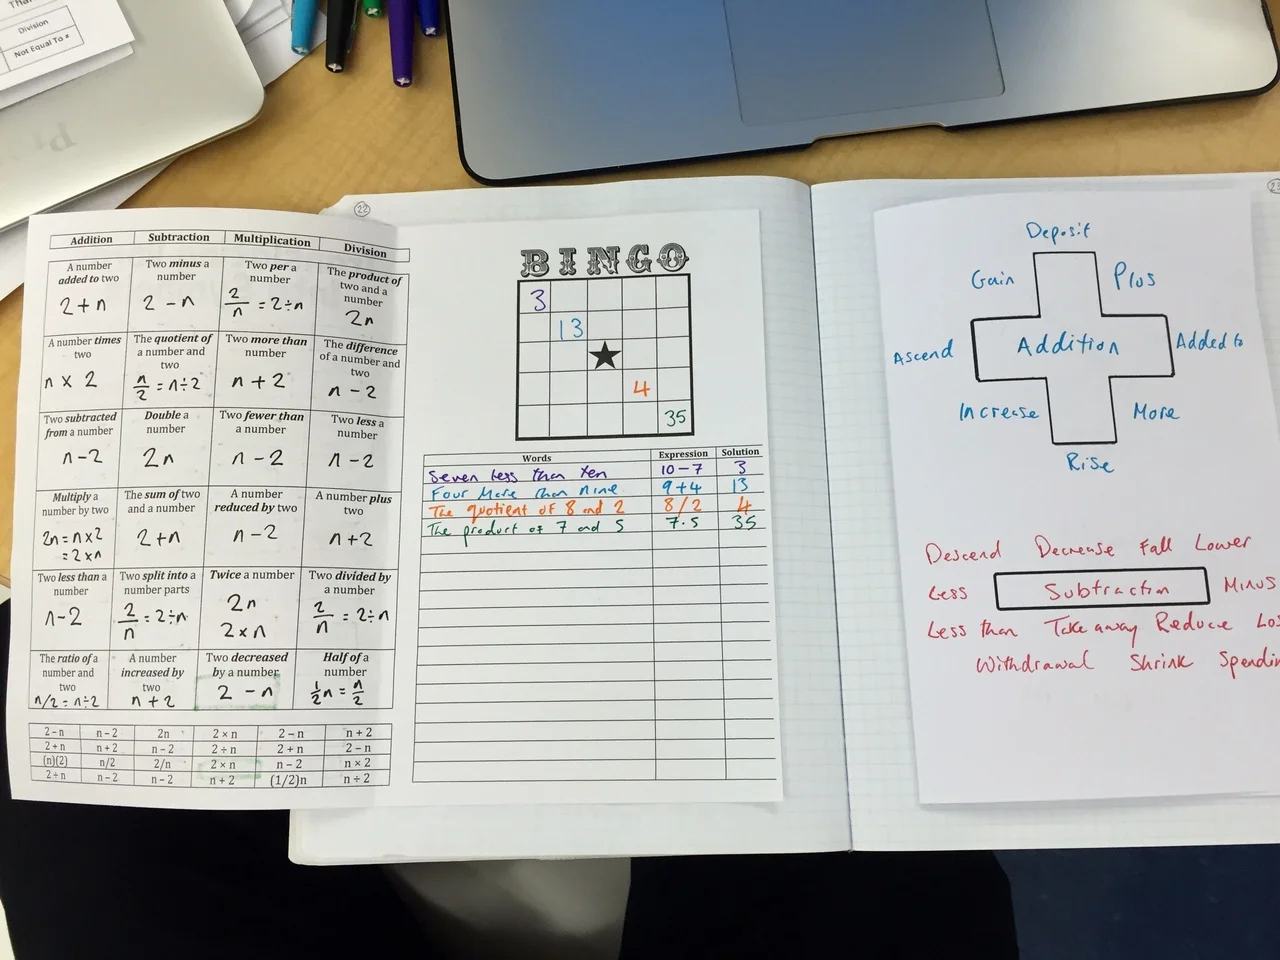 Division
Not Equal To ≠
22
Addition Subtraction Multiplication Division
A number added to two
2 + n
Two minus a number
2 - n
Two per a number
2/n = 2÷n
The product of two and a number
2n
A number times two
n x 2
The quotient of a number and two
n/2 = n÷2
Two more than number
n + 2
The difference of a number and two
n - 2
Two subtracted from a number
n-2
Double a number
2n
Two fewer than a number
n - 2
Two less a number
n - 2
Multiply a number by two
2n = n x 2
= 2 x n
The sum of two and a number
2+n
A number reduced by two
n-2
A number plus two
n+2
Two less than a number
n-2
Two split into a number parts
2/n = 2÷n
Twice a number
2n
2 x n
Two divided by a number
2/n = 2÷n
The ratio of a number and two
n/2 = n÷2
A number increased by two
n+2
Two decreased by a number
2 - n
Half of a number
½n = n/2
2 - n n - 2 2n 2 × n 2 - n n + 2
2 + n n + 2 n - 2 2 ÷ n 2 + n 2 - n
(n)(2) n/2 2/n 2 × n n - 2 n × 2
n - 2 n - 2 n + 2 (1/2)n n ÷ 2
BINGO
3
13
4
35
Words Expression Solution
Seven less than ten 10-7 3
Four More than nine 9+4 13
The quotient of 8 and 2 8/2 4
The product of 7 and 5 7·5 35
23
Deposit
Gain Plus
Ascend Addition Added to
Increase More
Rise
Descend Decrease Fall Lower
Less Subtraction Minus
Less than Take away Reduce
Withdrawal Shrink